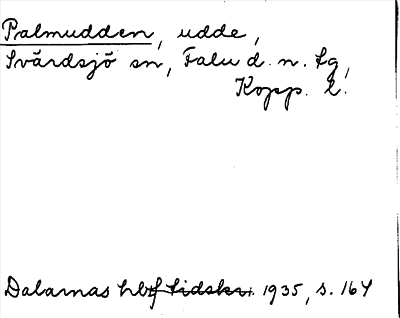 Palmudden, udde,
Svärdsjö sn, Falu d. n. tg,
Kopp. l.
Dalarnas hbf tidskr. 1935, s. 164